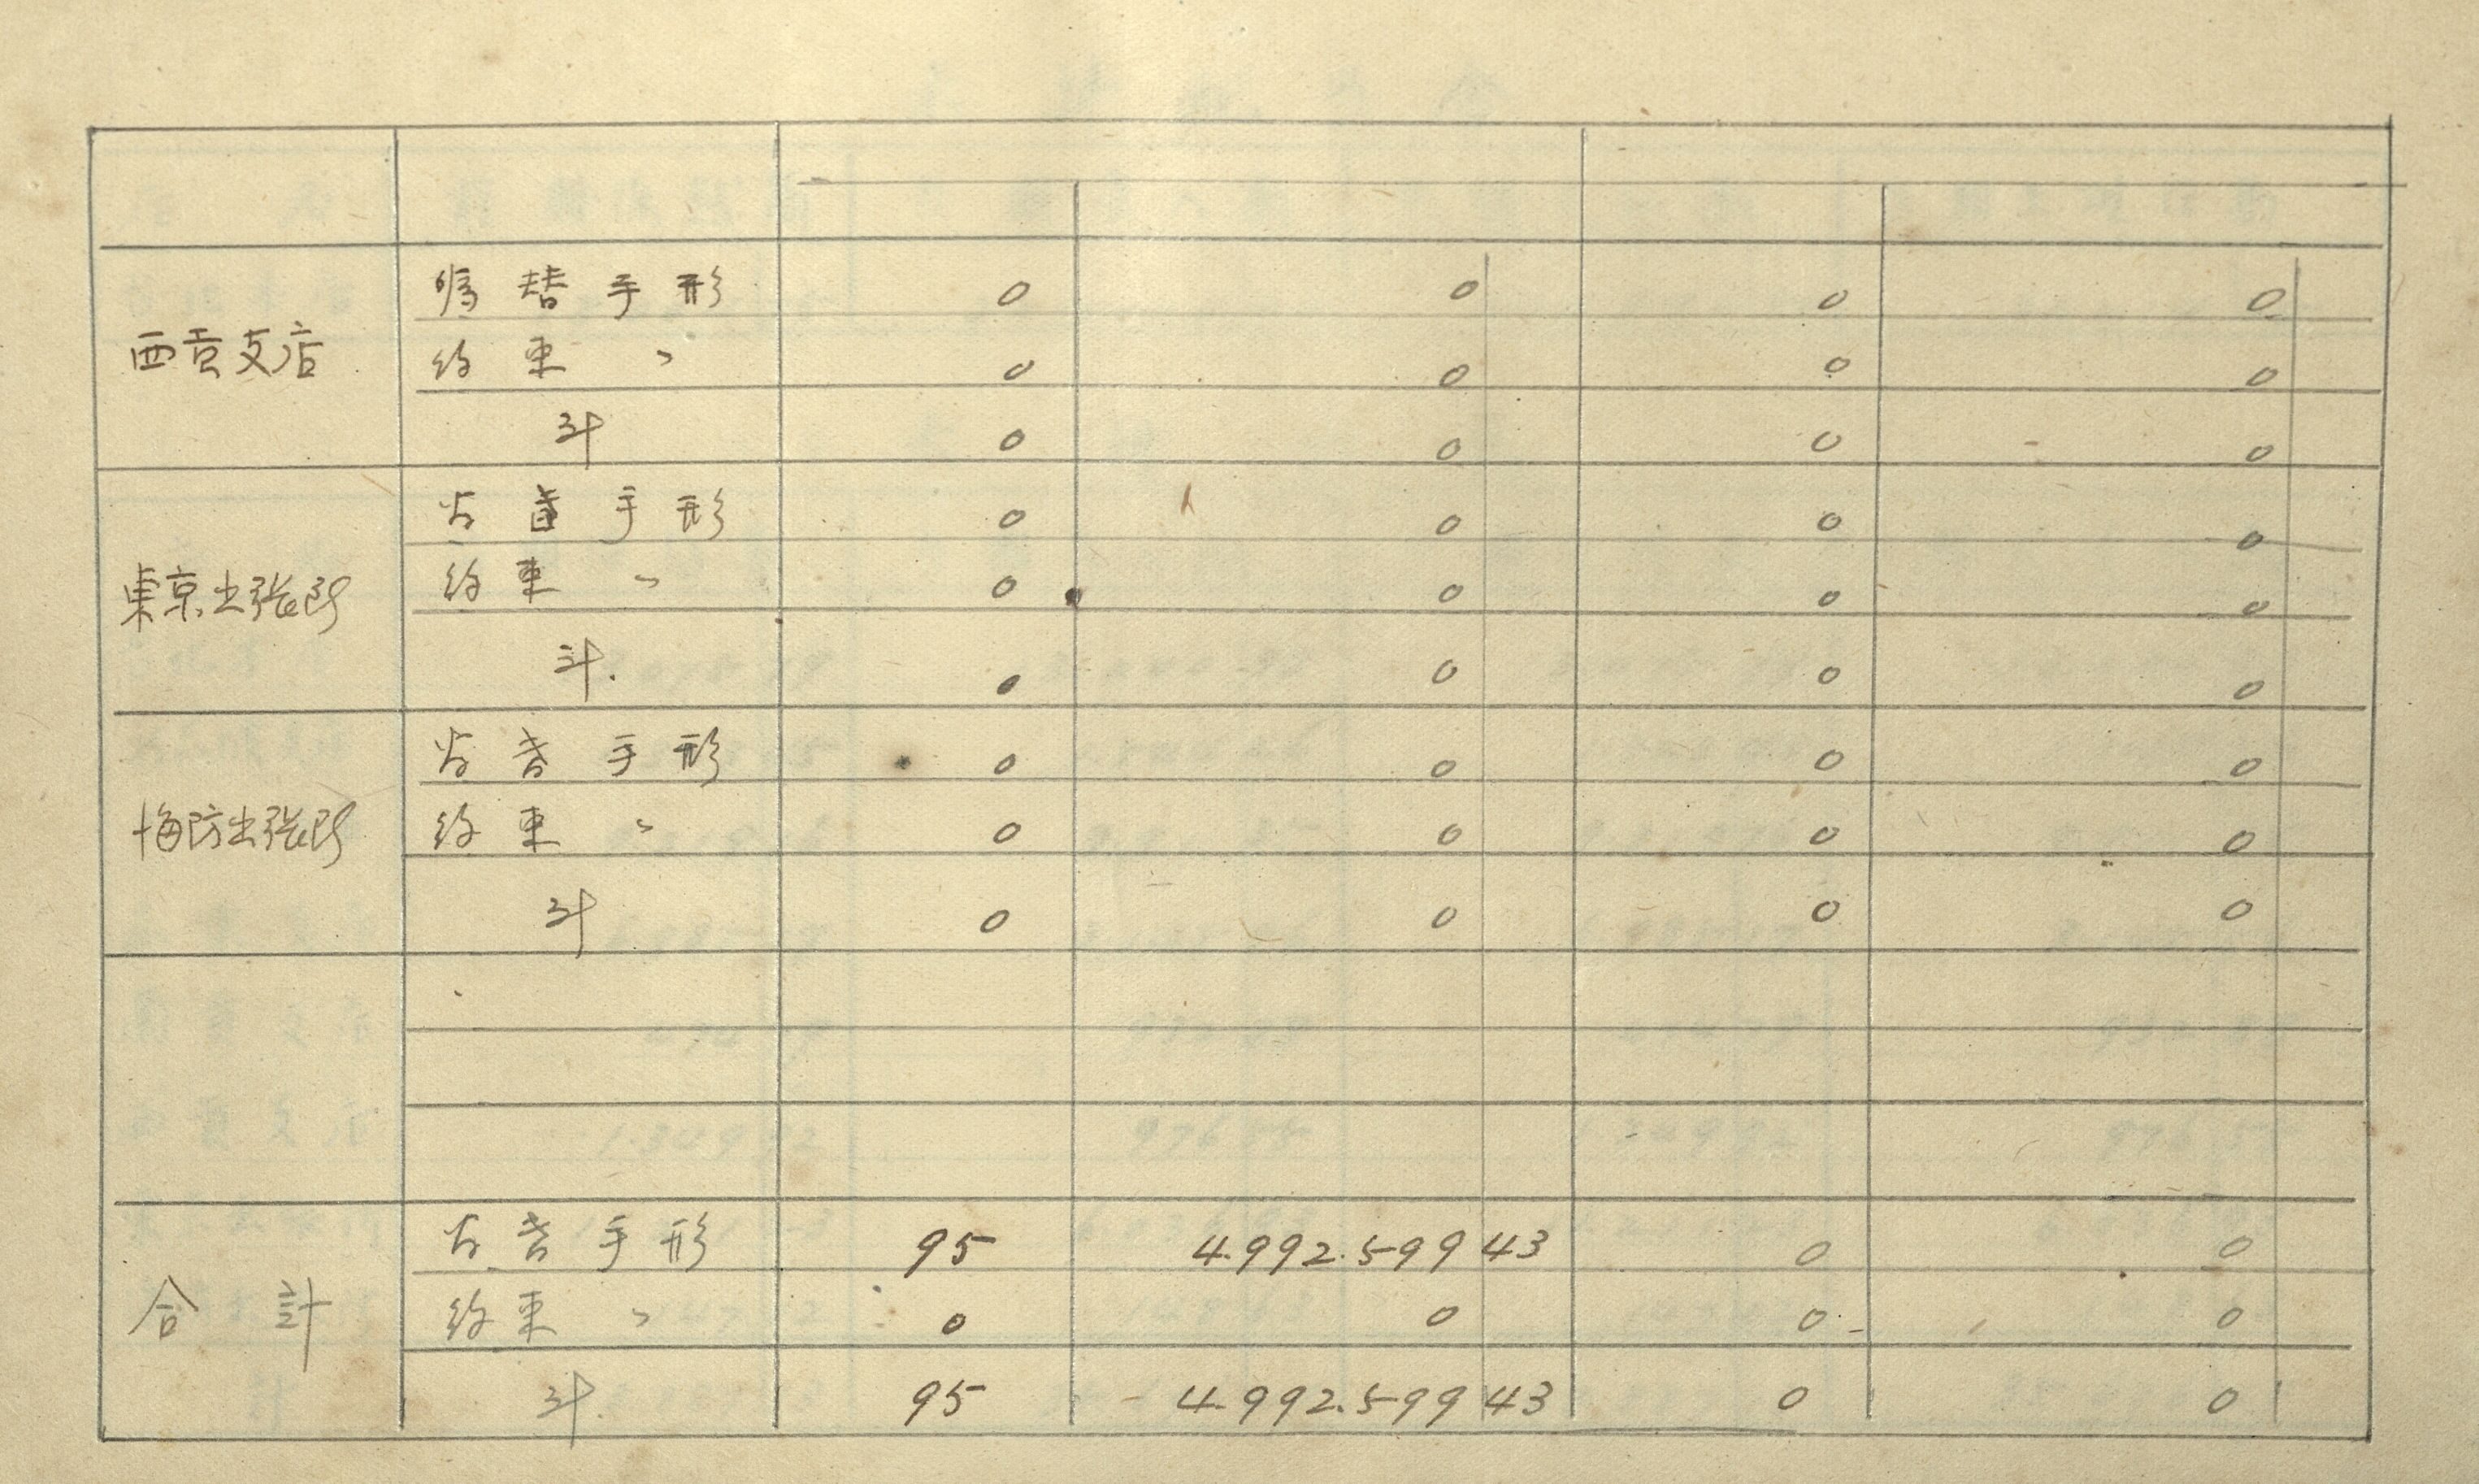 西貢支店
為替手形 0 0 0 0
約束 〃 0 0 0 0
計 0 0 0 0
東京出張所
為替手形 0 0 0 0
約束 〃 0 0 0 0
計 0 0 0 0
海防出張所
為替手形 0 0 0 0
約束 〃 0 0 0 0
計 0 0 0 0
合計
為替手形 95 4.992.599 43 0 0
約束 〃 0 0 0 0
計 95 4.992.599 43 0 0